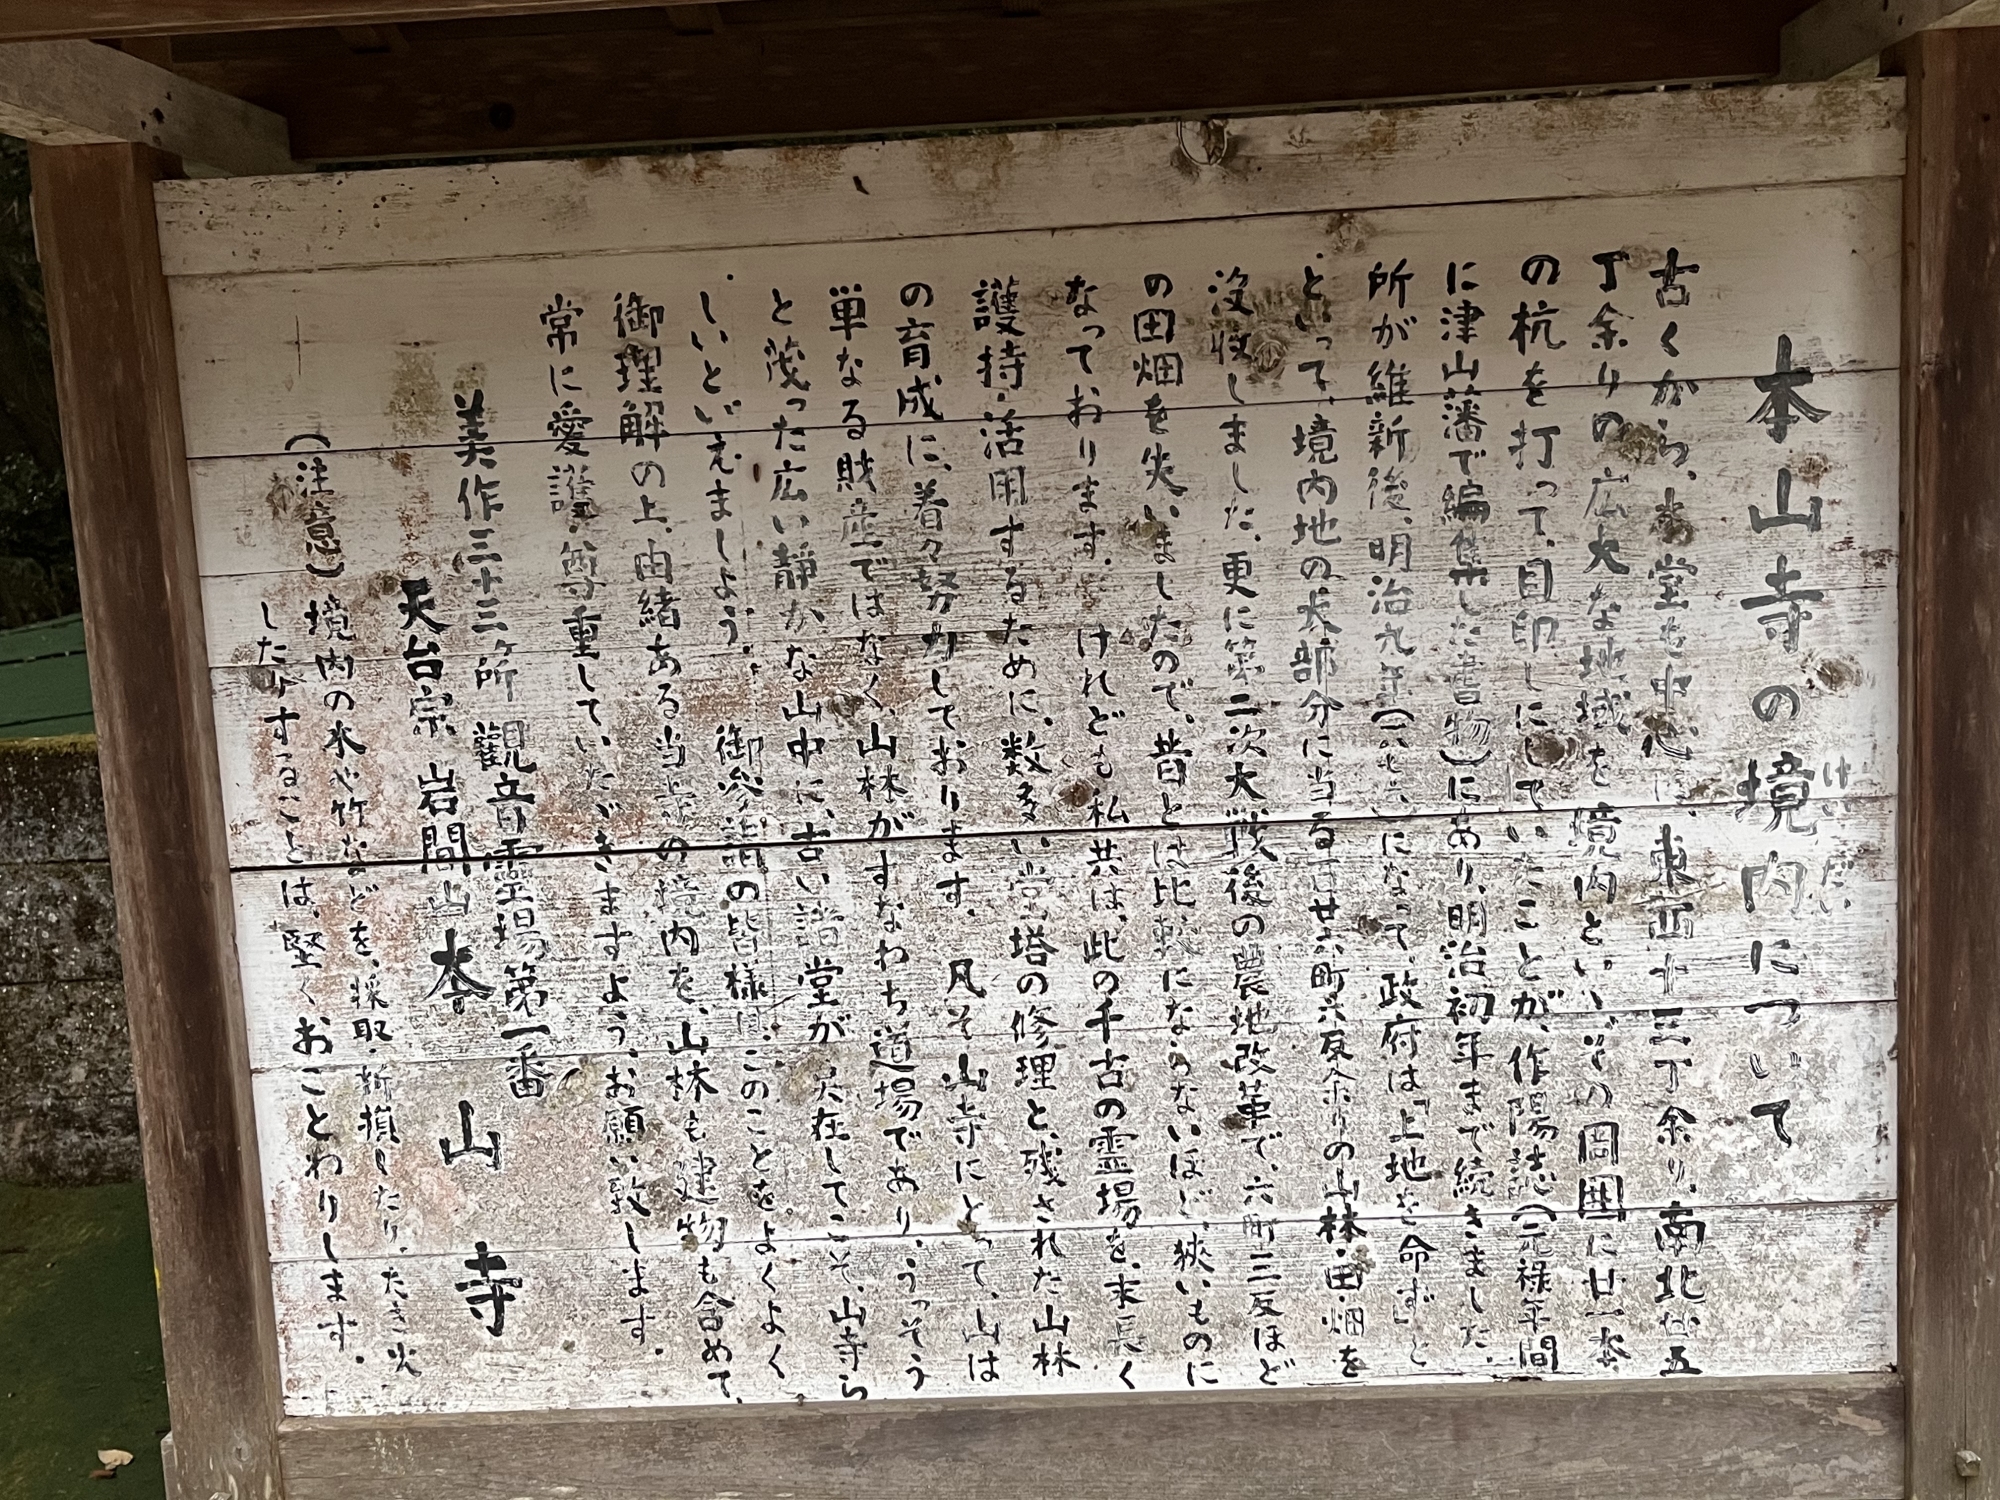 本山寺の境内について
けいだい
古くから、本堂を中心に、東西十三丁余り、南北廿五
丁余りの広大な地域を境内といい、その周囲に廿一本
の杭を打って、目印しにしていたことが、作陽誌(元禄年間
に津山藩で編集した書物)にあり、明治初年まで続きました。
所が維新後、明治九年(一八七六)になって、政府は「上地を命ず」と
といって、境内地の大部分に当る百廿六町六反余りの山林・田・畑を
没収しました。更に第二次大戦後の農地改革で、六町三反ほど
の田畑を失いましたので、昔とは比較にならないほど、狭いものに
なっております。けれども私共は、此の千古の霊場を、末長く
護持・活用するために、数多い堂塔の修理と、残された山林
の育成に、着々努力しております。凡そ山寺にとって、山は
単なる財産ではなく、山林がすなわち道場であり、うっそう
と茂った広い静かな山中に、古い諸堂が点在してこそ、山寺ら
しいといえましょう。御参詣の皆様は、このことを、よくよく
御理解の上、由緒ある当寺の境内を、山林も建物も含めて、
常に愛護・尊重していただきますよう、お願い致します。
美作三十三所観音霊場第一番
天台宗 岩間山 本山寺
(注意)境内の木や竹などを、採取・折損したり、たき火
したりすることは、堅くおことわりします。